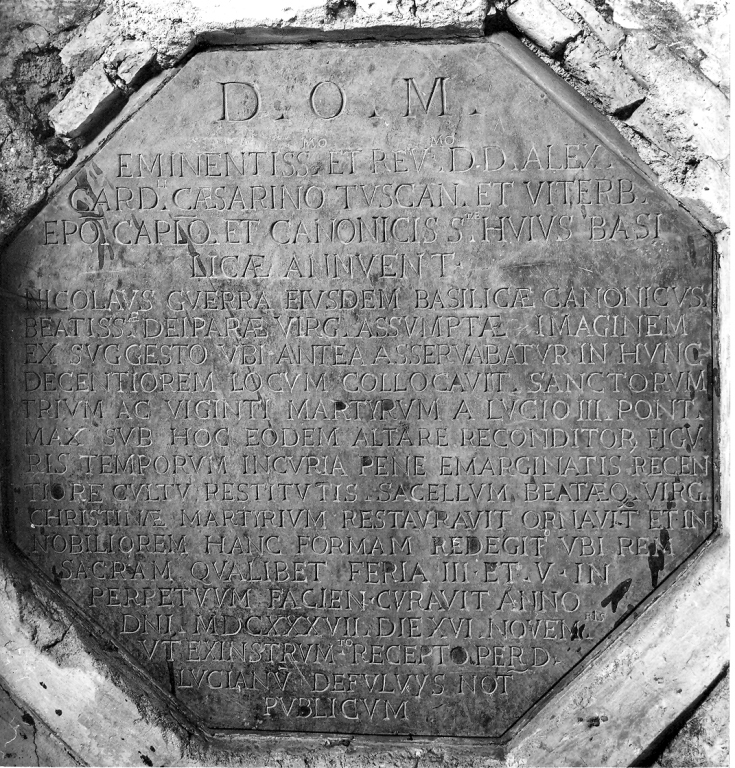 D. O. M.
EMINENTISS.MO ET REV.MO D.D. ALEX.
CARD. CÆSARINO TVSCAN. ET VITERB.
EPO CAPLO. ET CANONICIS S.TÆ HVIVS BASI
LICÆ ANNVENT.
NICOLAVS GVERRA EIVSDEM BASILICÆ CANONICVS.
BEATISS.Æ DEIPARÆ VIRG. ASSVMPTÆ IMAGINEM
EX SVGGESTO VBI ANTEA ASSERVABATVR IN HVNC
DECENTIOREM LOCVM COLLOCAVIT. SANCTORVM
TRIVM AC VIGINTI MARTYRVM A LVCIO III. PONT.
MAX. SVB HOC EODEM ALTARE RECONDITOR. FIGV
RIS TEMPORVM INCVRIA PENE EMARGINATIS RECEN
TIORE CVLTV RESTITVTIS. SACELLVM BEATÆQ. VIRG.
CHRISTINÆ MARTYRIVM RESTAVRAVIT ORNAVIT ET IN
NOBILIOREM HANC FORMAM REDEGIT VBI REM
SACRAM QVALIBET FERIA III. ET. V. IN
PERPETVVM FACIEN. CVRAVIT ANNO
DNI. MDCXXXVII. DIE XVI. NOVEM
VT EX INSTRVM.TO RECEPTO PER D.
LVCIANV DEFVLVVYS NOT
PVBLICVM